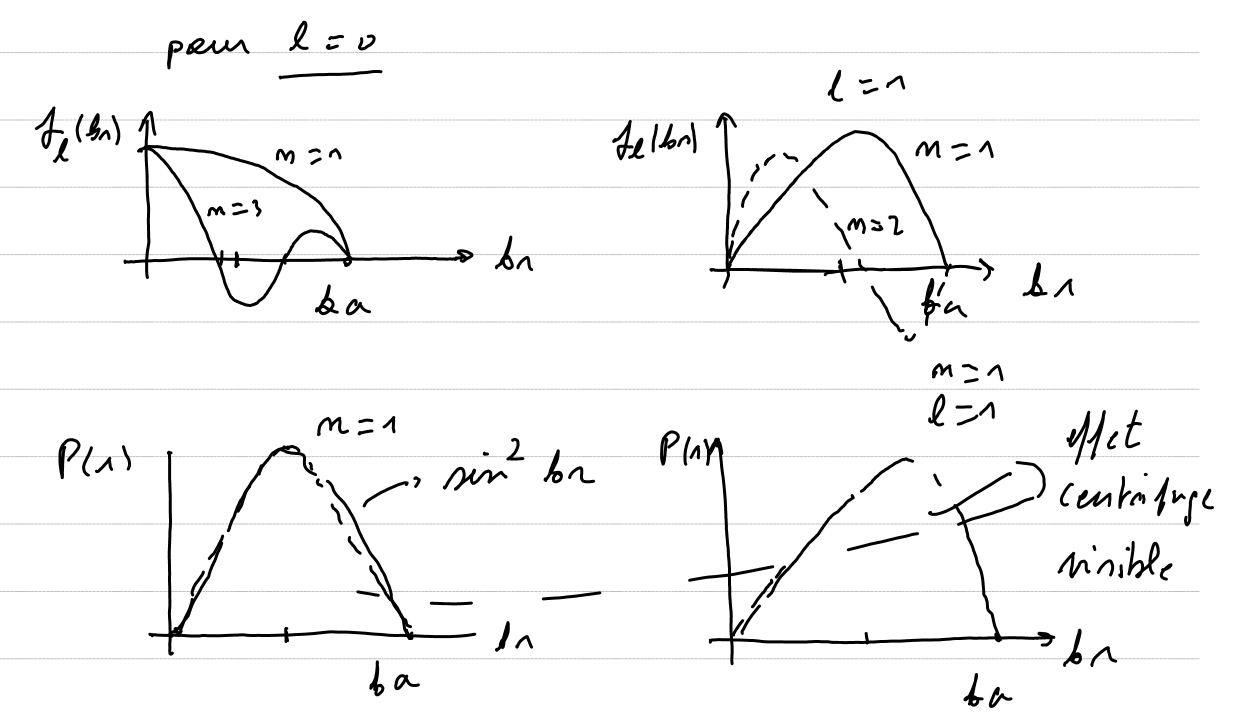 pour l = 0
j_l(kr)
n = 1
n = 3
kr
ka
l = 1
j_l(kr)
n = 1
n = 2
kr
ka
P(r)
n = 1
sin² kr
kr
ka
n = 1
l = 1
P(r)
effet
centrifuge
visible
kr
ka